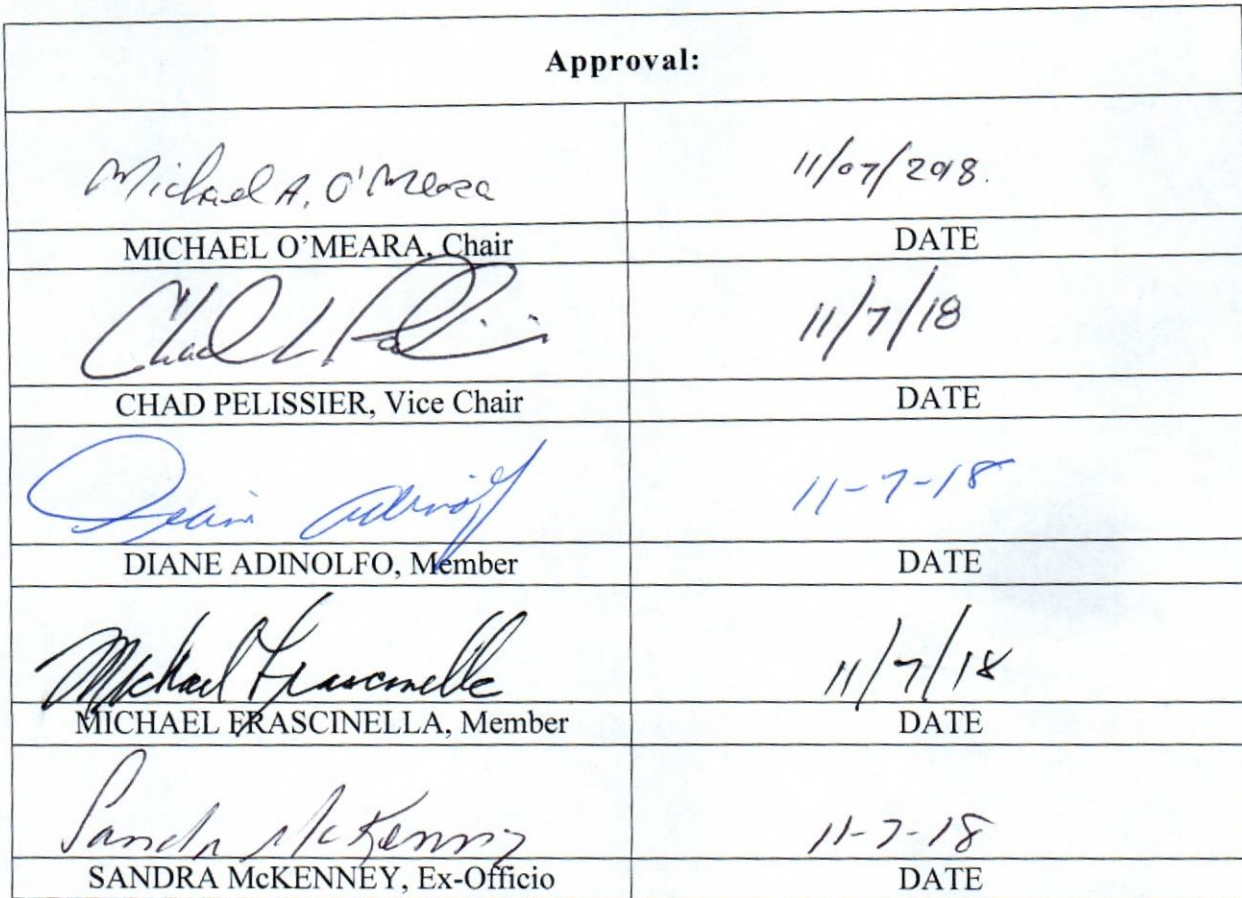 Approval:
Michael A. O'Meara 11/07/2018.
MICHAEL O'MEARA, Chair DATE
Chad L Pelissier 11/7/18
CHAD PELISSIER, Vice Chair DATE
Diane Adinolfo 11-7-18
DIANE ADINOLFO, Member DATE
Michael Frascinella 11/7/18
MICHAEL FRASCINELLA, Member DATE
Sandra McKenney 11-7-18
SANDRA McKENNEY, Ex-Officio DATE